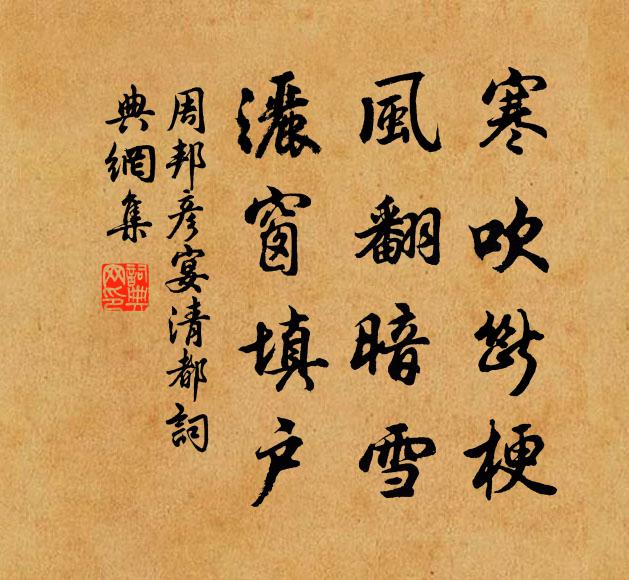 寒吹斷梗
風翻暗雪
灑窗填户
周邦彦宴清都詞
典網集
詞典網印